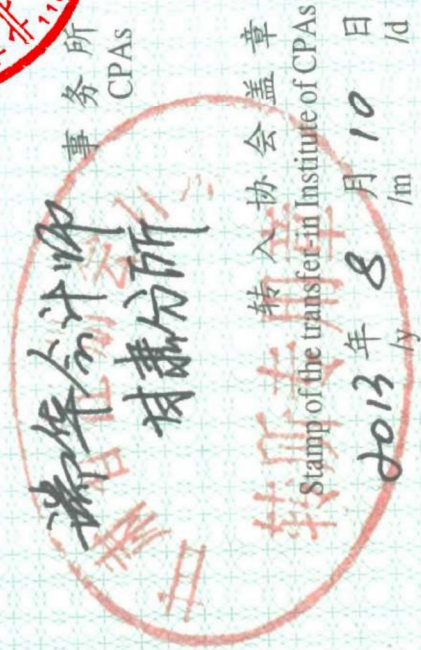 瑞华会计师 事务所
甘肃分所 CPAs
转入协会盖章
Stamp of the transfer-in Institute of CPAs
2013 年 8 月 10 日
/y /m /d
转所专用章